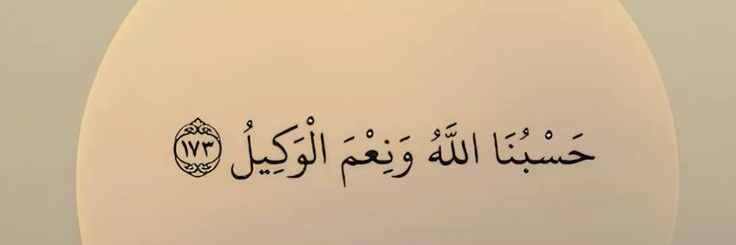 حَسْبُنَا اللَّهُ وَنِعْمَ الْوَكِيلُ ١٧٣